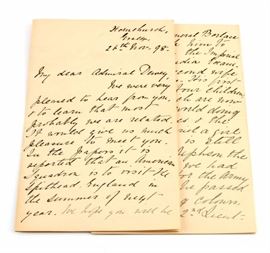 Hornchurch,
Essex.
28th Nov. 98.
My dear Admiral Dewey,
We were very
pleased to hear from you
to learn that most
probably we are related.
It would give us much
pleasure to meet you.
In the Papers it is
reported that an American
Squadron is to visit
Spithead, England in
the summer of next
year. We hope you will be
him to
the Imperial
India
second wife
first
four children
are now
doing
a girl
is still
Nephew the
we had
for the Army
he passed
colours
2nd Lieut-